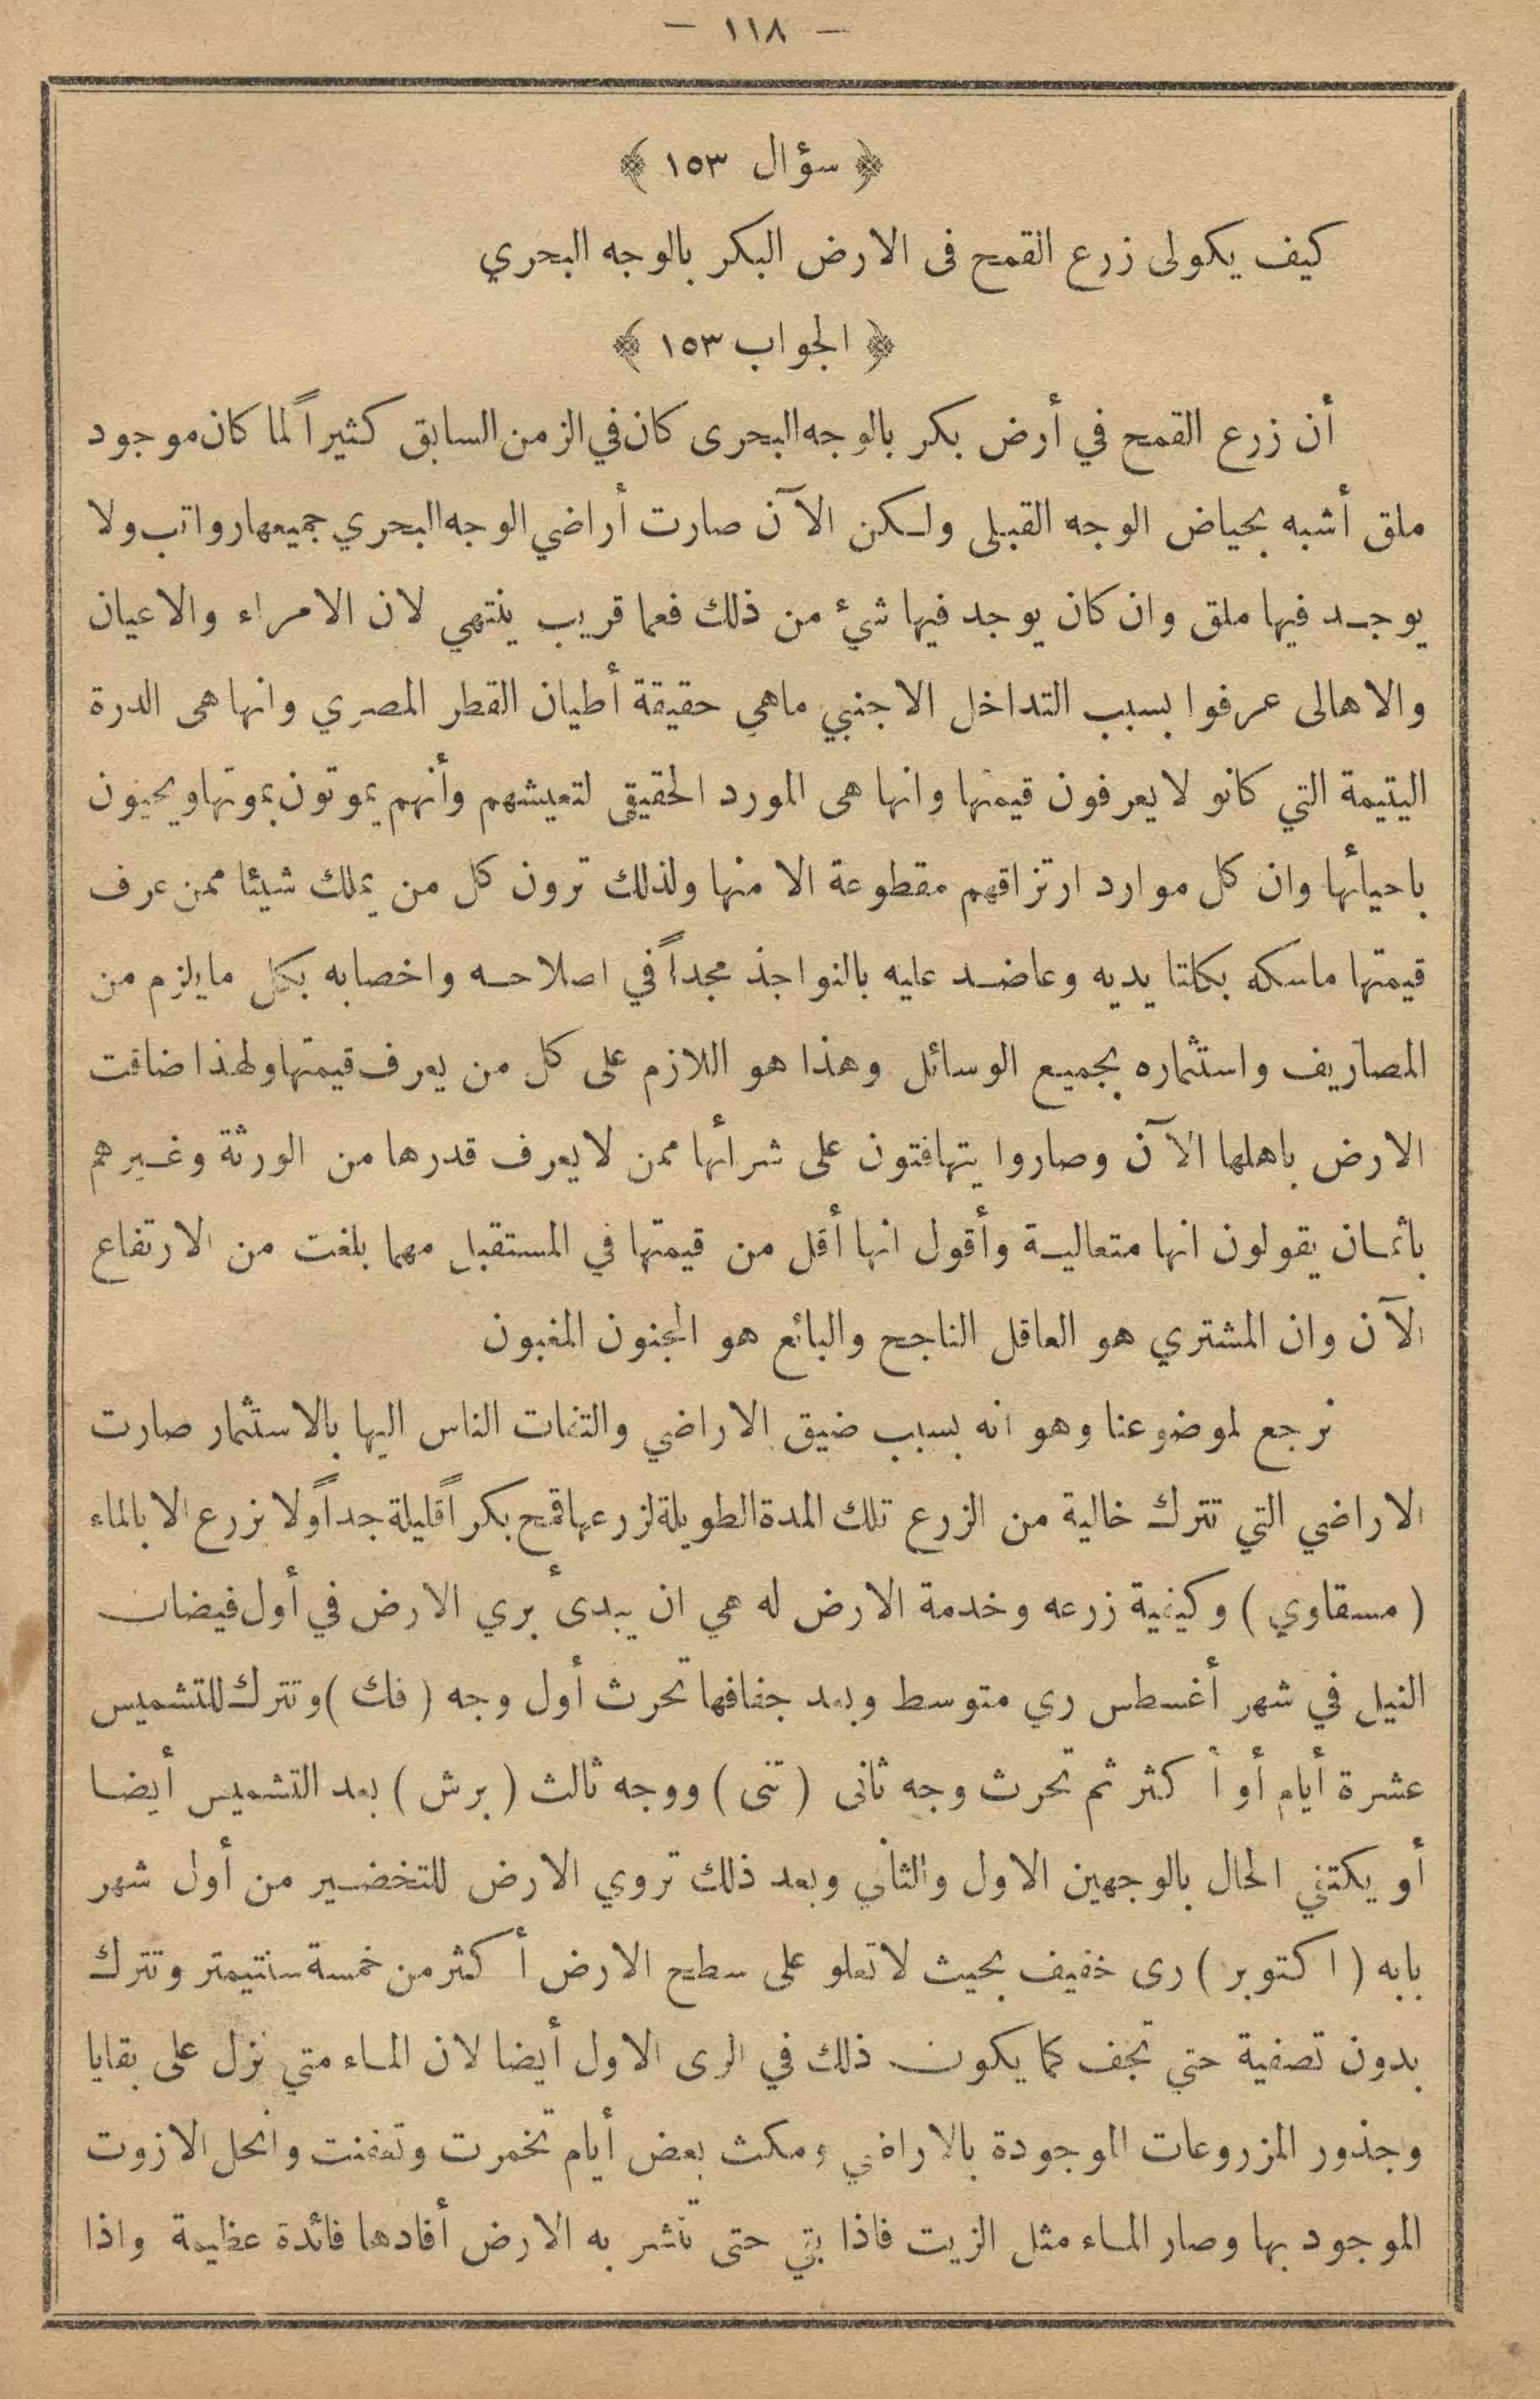 — ١١٨ —
﴿ سؤال ١٥٣ ﴾
كيف يكولى زرع القمح فى الارض البكر بالوجه البحري
﴿ الجواب ١٥٣ ﴾
أن زرع القمح في أرض بكر بالوجه البحرى كان في الزمن السابق كثيراً لما كان موجود
ملق أشبه بحياض الوجه القبلى ولكن الآن صارت أراضي الوجه البحري جميعها رواتب ولا
يوجد فيها ملق وان كان يوجد فيها شئ من ذلك فعما قريب ينتهي لان الامراء والاعيان
والاهالى عرفوا بسبب التداخل الاجنبي ماهي حقيقة أطيان القطر المصري وانها هى الدرة
اليتيمة التي كانو لا يعرفون قيمتها وانها هى المورد الحقيقى لتعيشهم وأنهم يموتون بموتها ويحيون
باحيائها وان كل موارد ارتزاقهم مقطوعة الا منها ولذلك ترون كل من يملك شيئا ممن عرف
قيمتها ماسكه بكلتا يديه وعاضد عليه بالنواجذ مجداً في اصلاحه واخصابه بكل مايلزم من
المصاريف واستثماره بجميع الوسائل وهذا هو اللازم على كل من يعرف قيمتها ولهذا ضاقت
الارض باهلها الآن وصاروا يتهافتون على شرائها ممن لا يعرف قدرها من الورثة وغيرهم
باثمان يقولون انها متعالية وأقول انها أقل من قيمتها في المستقبل مهما بلغت من الارتفاع
الآن وان المشتري هو العاقل الناجح والبائع هو المجنون المغبون
نرجع لموضوعنا وهو انه بسبب ضيق الاراضي والتفات الناس اليها بالاستثمار صارت
الاراضي التي تترك خالية من الزرع تلك المدة الطويلة لزرعها قمح بكر اًقليلة جداً ولا نزرع الا بالماء
( مسقاوي ) وكيفية زرعه وخدمة الارض له هي ان يبدئ بري الارض في أول فيضان
النيل في شهر أغسطس ري متوسط وبعد جفافها تحرث أول وجه ( فك ) وتترك للتشميس
عشرة أيام أو أكثر ثم تحرث وجه ثانى ( تنى ) ووجه ثالث ( برش ) بعد التشميس أيضا
أو يكتفي الحال بالوجهين الاول والثاني وبعد ذلك تروي الارض للتخضير من أول شهر
بابه ( اكتوبر ) رى خفيف بحيث لا تعلو على سطح الارض أكثر من خمسة سنتيمتر وتترك
بدون تصفية حتي تجف كما يكون ذلك في الرى الاول أيضا لان الماء متي نزل على بقايا
وجذور المزروعات الموجودة بالاراضي ومكث بعض أيام تخمرت وتعفنت وانحل الازوت
الموجود بها وصار الماء مثل الزيت فاذا بقي حتى تشر به الارض أفادها فائدة عظيمة واذا